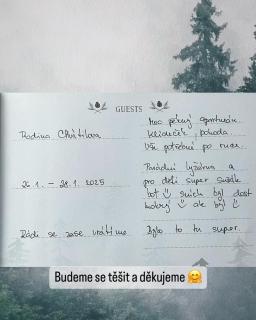 GUESTS
Moc pěkný apartmán.
Rodina Chvátilova
Klidový, pohoda.
Vše potřebné po ruce.
Parádní lyžárna a
26.1. – 28.1. 2025
pro děti super
byl dost
ale byl
Rádi se zase vrátíme
Bylo to tu super.
Budeme se těšit a děkujeme 🤗